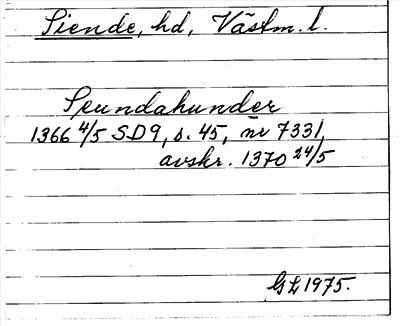 Siende, hd, Västm. l.
Seundahunder
1366 4/5 SD9, s. 45, nr 7331,
avskr. 1370 24/5
GL 1975.